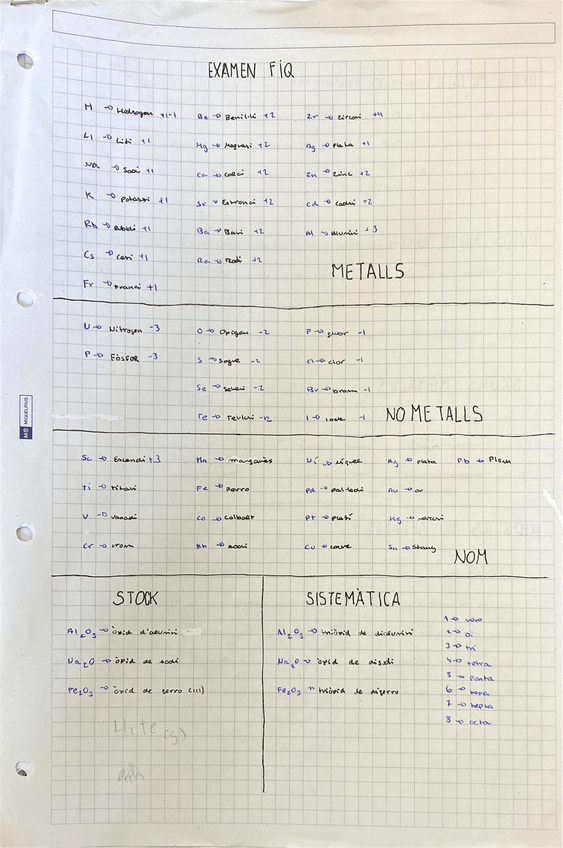 EXAMEN FIQ
H → Hidrogen +1-1 Be → Beril·li +2 Zr → Zirconi +4
Li → Liti +1 Mg → Magnesi +2 Ag → Plata +1
Na → Sodi +1 Ca → Calci +2 Zn → Zinc +2
K → Potassi +1 Sr → Estronci +2 Cd → Cadmi +2
Rb → Rubidi +1 Ba → Bari +2 Al → Alumini +3
Cs → Cesi +1 Ra → Radi +2
Fr → Franci +1
METALLS
N → Nitrogen -3 O → Oxigen -2 F → fluor -1
P → Fòsfor -3 S → Sofre -2 Cl → clor -1
Se → Seleni -2 Br → brom -1
Te → Tel·luri -2 I → iode -1
NO METALLS
Sc → Escandi +3 Mn → manganès Ni → níquel Ag → plata Pb → Plom
Ti → titani Fe → ferro Pd → pal·ladi Au → or
V → vanadi Co → Colbalt Pt → platí Hg → mercuri
Cr → crom Rh → rodi Cu → coure Sn → Stany
NOM
STOCK
Al2O3 → òxid d'alumini
Na2O → òxid de sodi
Fe2O3 → òxid de ferro (III)
H2Te (g)
SISTEMÀTICA
Al2O3 → triòxid de dialumini
Na2O → òxid de disodi
Fe2O3 → triòxid de diferro
1 → mono
2 → di
3 → tri
4 → tetra
5 → penta
6 → hexa
7 → hepta
8 → octa
MIQUELRIUS